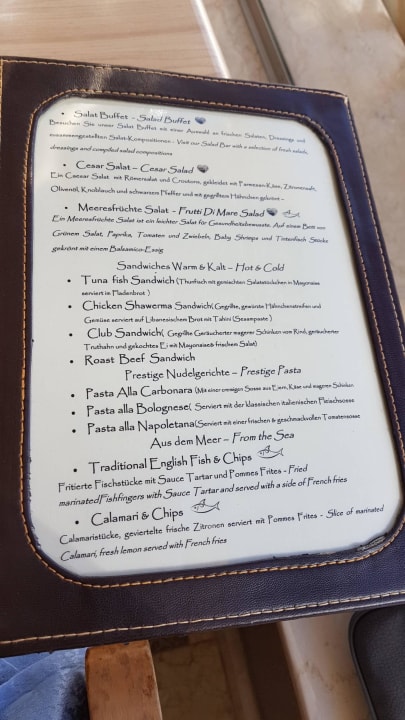 • Salat Buffet - Salad Buffet
Besuchen Sie unser Salat Buffet mit einer Auswahl an frischen Salaten, Dressings und
zusammengestellten Salat-Kompositionen - Visit our Salad Bar with a selection of fresh salads,
dressings and compiled salad compositions
• Cesar Salat – Cesar Salad
Ein Caesar Salat mit Römersalat und Croutons, gekleidet mit Parmesan-Käse, Zitronensaft,
Olivenöl, Knoblauch und schwarzem Pfeffer und mit gegrilltem Hähnchen gekrönt –
• Meeresfrüchte Salat – Frutti Di Mare Salad
Ein Meeresfrüchte Salat ist ein leichter Salat für Gesundheitsbewusste. Auf einem Bett von
Grünem Salat, Paprika, Tomaten und Zwiebeln, Baby Shrimps und Tintenfisch Stücke
gekrönt mit einem Balsamico-Essig
Sandwiches Warm & Kalt – Hot & Cold
• Tuna fish Sandwich (Thunfisch mit gemischten Salatstückchen in Mayonaise
serviert in Fladenbrot )
• Chicken Shawerma Sandwich( Gegrillte, gewürzte Hähnchenstreifen und
Gemüse serviert auf Libanesischem Brot mit Tahini (Sesampaste )
• Club Sandwich( Gegrillte Geräucherter magerer Schinken vom Rind, geräucherter
Truthahn und gekochtes Ei mit Mayonaise& frischem Salat)
• Roast Beef Sandwich
Prestige Nudelgerichte – Prestige Pasta
• Pasta Alla Carbonara (Mit einer cremigen Sosse aus Eiern, Käse und mageren Schinken
• Pasta alla Bolognese( Serviert mit der klassischen italienischen Fleischsosse
• Pasta alla Napoletana(Serviert mit einer frischen & geschmackvollen Tomatensosse
Aus dem Meer – From the Sea
• Traditional English Fish & Chips
Fritierte Fischstücke mit Sauce Tartar und Pommes Frites - Fried
marinatedFishfingers with Sauce Tartar and served with a side of French fries
• Calamari & Chips
Calamaristücke, geviertelte frische Zitronen serviert mit Pommes Frites - Slice of marinated
Calamari, fresh lemon served with French fries